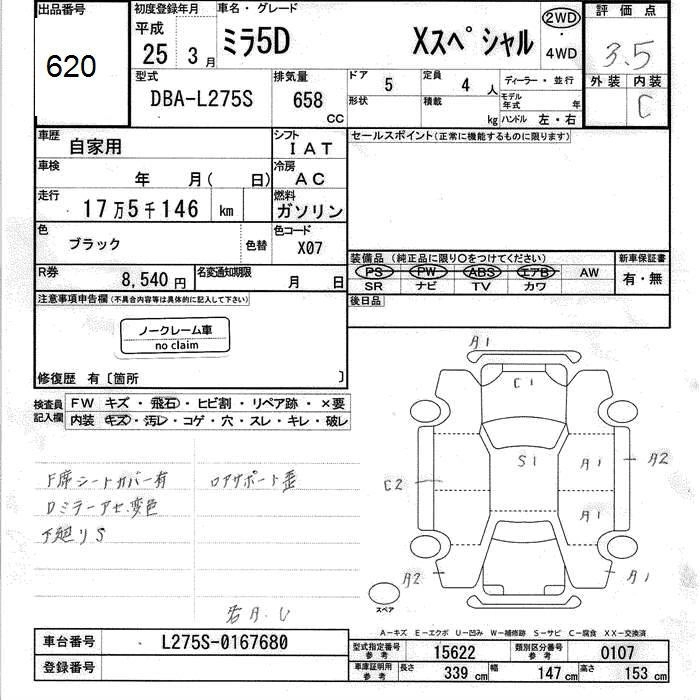 出品番号
620
初度登録年月
平成
25 3月
車名・グレード
ミラ5D Xスペシャル
2WD
・
4WD
評価点
3.5
外装 内装
C
型式
DBA-L275S
排気量
658
CC
ドア
5
定員
4 人
ディーラー・並行
形状
積載
kg
モデル年式 年
ハンドル 左・右
車歴
自家用
シフト
IAT
セールスポイント(正常に機能するものに限ります)
車検
年 月( 日)
冷房
AC
走行
17万5千146 km
燃料
ガソリン
色
ブラック
色替
色コード
X07
装備品(純正品に限り○をつけてください)
PS PW ABS エアB AW
SR ナビ TV カワ
新車保証書
有・無
R券
8,540 円
名変通知期限
月 日
後日品
注意事項申告欄(不具合内容等は具体的に記入して下さい)
ノークレーム車
no claim
修復歴 有〔箇所 〕
検査員記入欄
FW キズ・飛石・ヒビ割・リペア跡・×要
内装 キズ・汚レ・コゲ・穴・スレ・キレ・破レ
F席シートカバー有
Dミラーアセ変色
下廻りS
ロアサポート歪
A1
C1
S1
A1
A2
C2
A1
A2
A1
スペア
A-キズ E-エクボ U-凹み W-補修跡 S-サビ C-腐食 XX-交換済
車台番号
L275S-0167680
登録番号
型式指定番号
参考
15622
類別区分番号
参考
0107
車庫証明用
参考
長さ
339 cm
幅
147 cm
高さ
153 cm